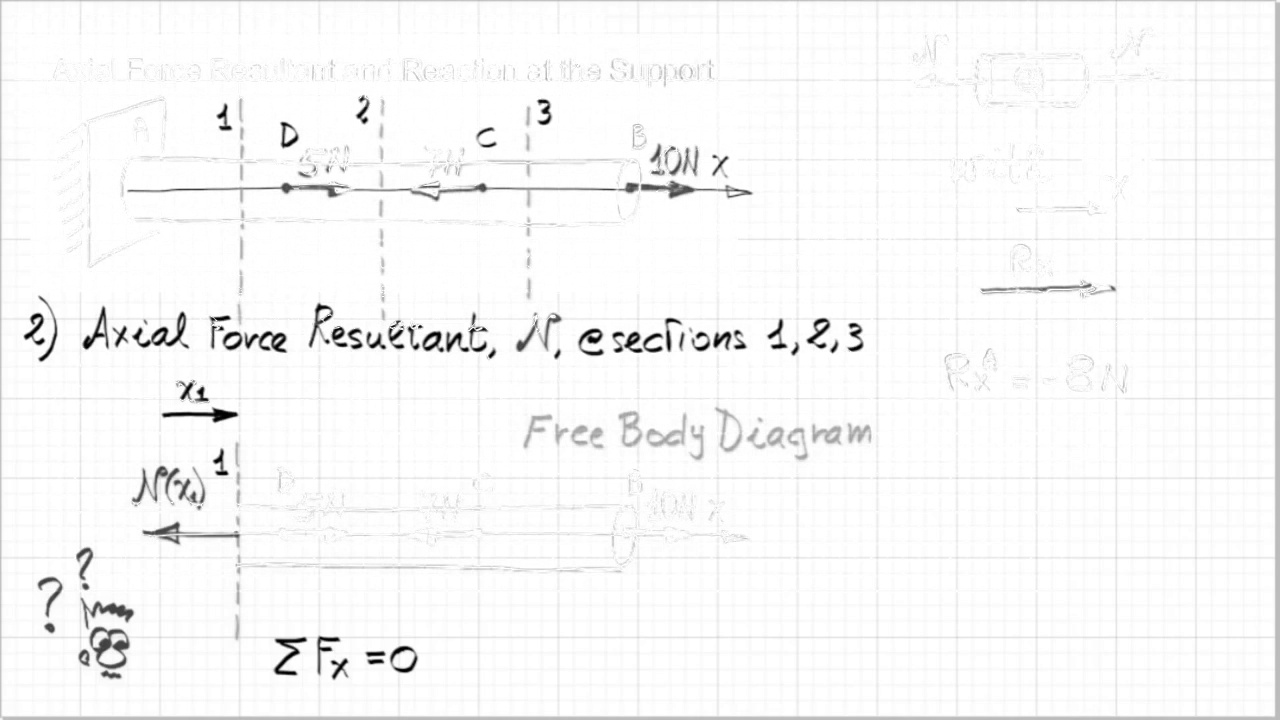 Axial Force Resultant and Reaction at the Support
N N
1 2 3
A D C B
5N 7N 10N x
with x
Rx
2) Axial Force Resultant, N, @sections 1,2,3
RxA = -8N
x1
Free Body Diagram
1
N(x1) D C B
5N 7N 10N x
? ?
ΣFx =0